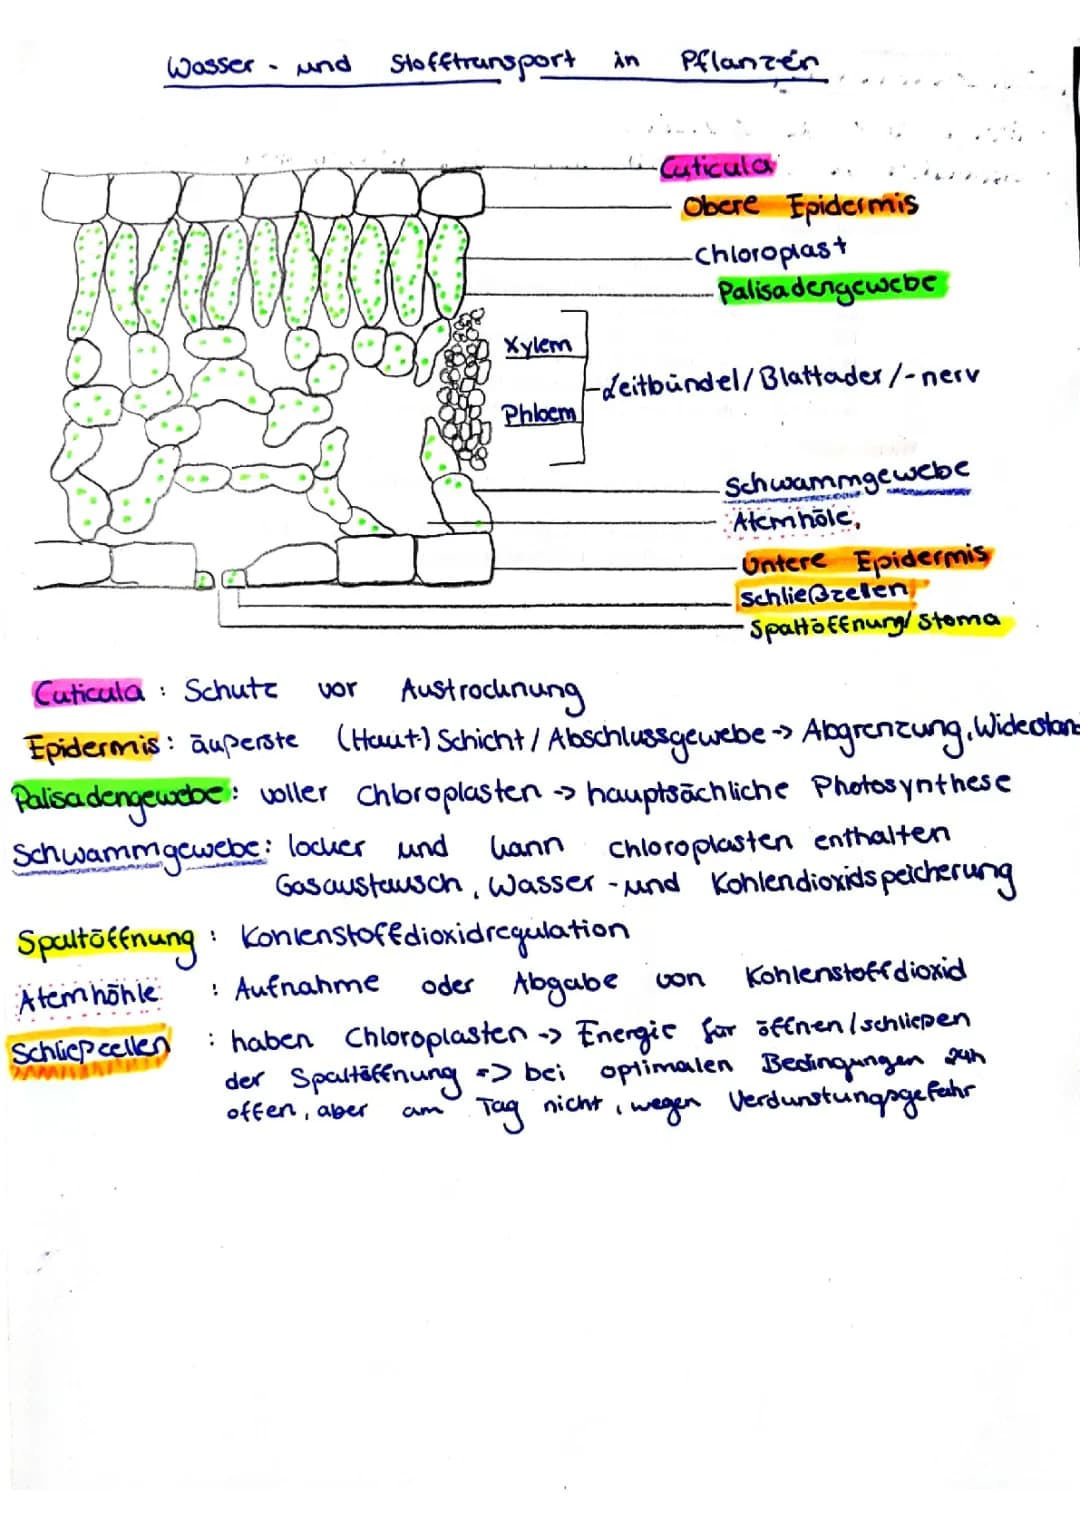 Wasser- und Stofftransport in Pflanzen
Cuticula
Obere Epidermis
Chloroplast
Palisadengewebe
Xylem
Leitbündel/Blattader/-nerv
Phloem
Schwammgewebe
Atemhöle,
Untere Epidermis
Schließzellen
Spaltöffnung/Stoma
Cuticula: Schutz vor Austrocknung
Epidermis: äußerste (Haut-) Schicht/Abschlussgewebe -> Abgrenzung, Widerstan
Palisadengewebe: voller Chloroplasten -> hauptsächliche Photosynthese
Schwammgewebe: locker und kann Chloroplasten enthalten
Gasaustausch, Wasser-und Kohlendioxidspeicherung
Spaltöffnung: Kohlenstoffdioxidregulation
Atemhöhle: Aufnahme oder Abgabe von Kohlenstoffdioxid
Schließzellen: haben Chloroplasten -> Energie für öffnen/schließen
der Spaltöffnung -> bei optimalen Bedingungen 24h
offen, aber am Tag nicht, wegen Verdunstungsgefahr